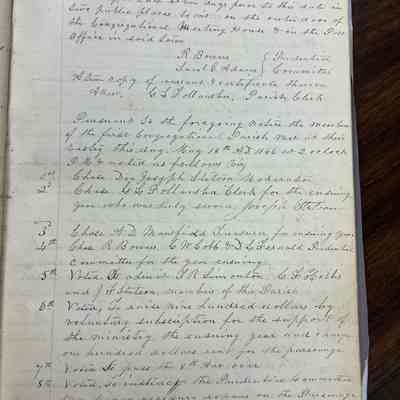 days prior to this date in
two public places to wit: on the outer door of
the Congregational Meeting House & in the Post
Office in said town
R Bowers } Prudential
Saml C Adams } Committee
A true copy of warrant & certificate thereon
Attest. C. L. Follansbee, Parish Clerk
Pursuant to the foregoing notice the members
of the first Congregational Parish met at their
Vestry this day, May 18th AD 1866 at 2 oclock
P.M. & voted as follows viz
1st Chose Dea Joseph Stetson Moderator
2d Chose C. L. Follansbee Clerk for the ensuing
year who was duly sworn. Joseph Stetson
3d Chose A D Mansfield Treasurer for ensuing year
4th Chose R Bowers, C W Cobb & D C Fernald Prudential
committee for the year ensuing
5th Voted to admit T R Simonton, C F Hobbs
and J Stetson, members of this Parish
6th Voted, To raise nine hundred dollars by
voluntary subscription for the support of
the ministry the ensuing year and
one hundred dollars rent for the parsonage
7th Voted to pass the 4th Art. over
8th Voted, to instruct the Prudential Committee
repairs on the Parsonage